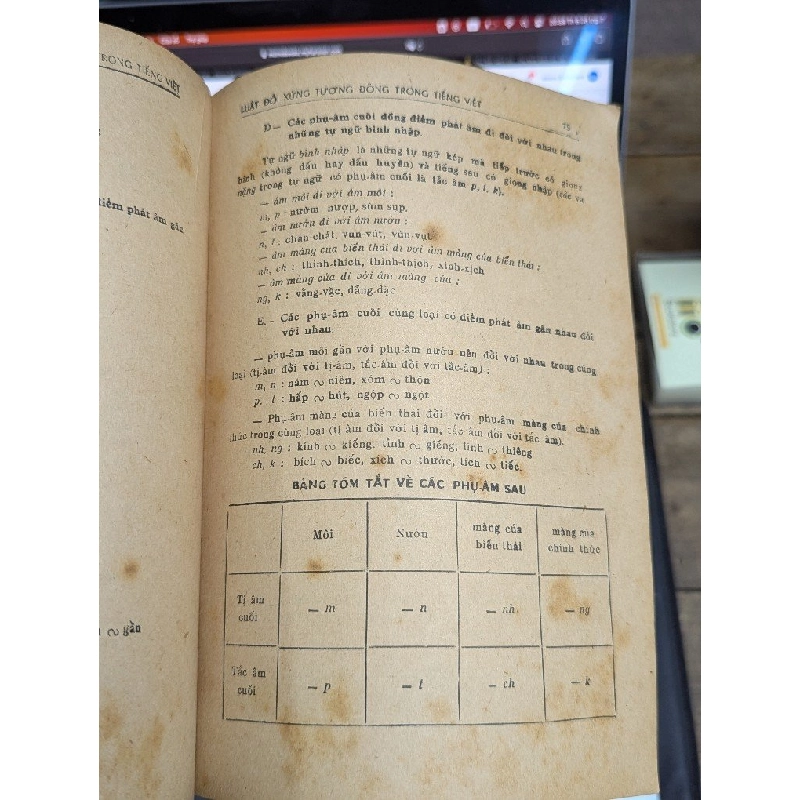 TRONG TIẾNG VIỆT
điểm phát âm gần
∾ gần
LUẬT ĐỐI XỨNG TƯƠNG ĐỒNG TRONG TIẾNG VIỆT
D — Các phụ-âm cuối đồng điểm phát âm đi đôi với nhau trong
những tự ngữ bình nhập.
Từ ngữ bình nhập là những tự ngữ kép mà tiếp trước có giọng
bình (không dấu hay dấu huyền) và tiếng sau có giọng nhập (sắc và
nặng trong tự ngữ có phụ-âm cuối là tắc âm p, t, k).
— âm môi đi với âm môi :
m, p : nườm nượp, sùm sụp.
— âm nướu đi với âm nướu :
n, t : chan chát, vun vút, vùn-vụt
— âm màng cúa biến thái đi với âm màng cúa biến thái :
nh, ch : thinh-thích, thình-thịch, xình-xịch
— âm màng cúa đi với âm màng cúa :
ng, k : vằng-vặc, dằng-dặc
E. — Các phụ-âm cuối cùng loại có điểm phát âm gần nhau đối
với nhau.
— phụ-âm môi gần với phụ-âm nướu nên đối với nhau trong cùng
loại (tị-âm đối với tị-âm, tắc-âm đối với tắc-âm) :
m, n : năm ∾ niên, xóm ∾ thôn
p, t : hấp ∾ hút, ngộp ∾ ngột
— Phụ-âm màng cúa biến thái đối với phụ-âm màng cúa chính
thức trong cùng loại (tị âm đối với tị âm, tắc âm đối với tắc âm).
nh, ng : kính ∾ kiếng, tỉnh ∾ giếng, linh ∾ thiêng
ch, k : bích ∾ biếc, xích ∾ thước, tích ∾ tiếc.
BẢNG TÓM TẮT VỀ CÁC PHỤ-ÂM SAU
Môi
Nướu
màng cúa
biến thái
màng cúa
chính thức
Tị âm
cuối
— m
— n
— nh
— ng
Tắc âm
cuối
— p
— t
— ch
— k